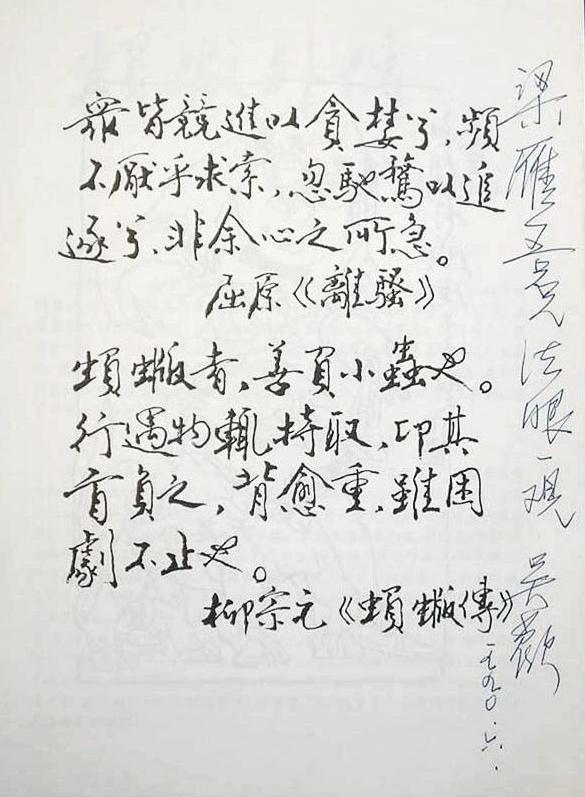 眾皆競進以貪婪兮，頻
不厭乎求索，忽馳騖以追
逐兮，非余心之所急。
屈原《離騷》
蝜蝂者，善負小蟲也。
行遇物輒持取，卬其
首負之，背愈重，雖困
劇不止也。
柳宗元《蝜蝂傳》
梁雁吾兄法眼一观 吴歡
一九九〇.六.